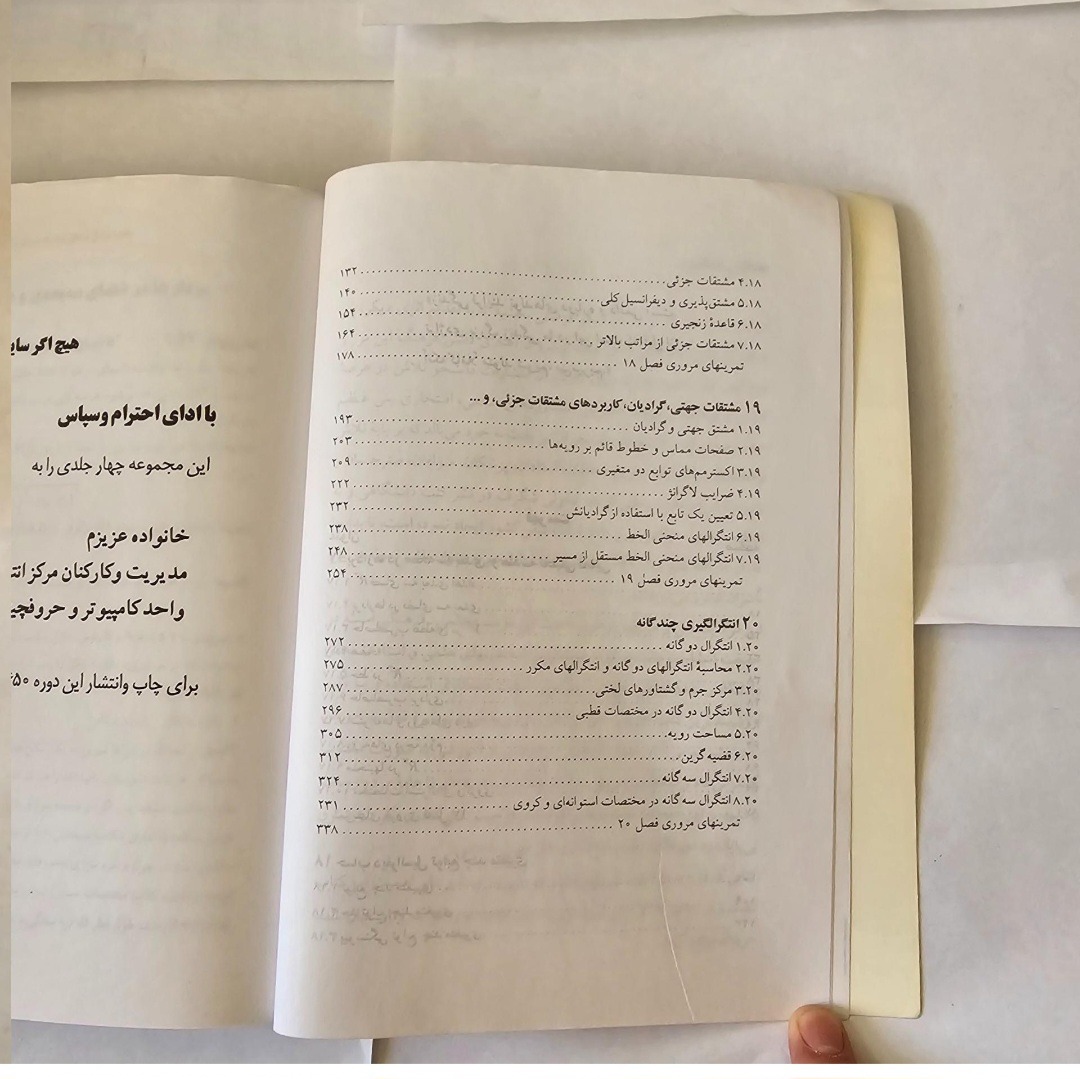 ۴.۱۸ مشتقات جزئی ........ ۱۳۲
۵.۱۸ مشتق‌پذیری و دیفرانسیل کلی ........ ۱۴۰
۶.۱۸ قاعدهٔ زنجیری ........ ۱۵۴
۷.۱۸ مشتقات جزئی از مراتب بالاتر ........ ۱۶۴
تمرینهای مروری فصل ۱۸ ........ ۱۷۸
۱۹ مشتقات جهتی، گرادیان، کاربردهای مشتقات جزئی، و ...
۱.۱۹ مشتق جهتی و گرادیان ........ ۱۹۳
۲.۱۹ صفحات مماس و خطوط قائم بر رویه‌ها ........ ۲۰۳
۳.۱۹ اکسترمم‌های توابع دو متغیری ........ ۲۰۹
۴.۱۹ ضرایب لاگرانژ ........ ۲۲۲
۵.۱۹ تعیین یک تابع با استفاده از گرادیانش ........ ۲۳۲
۶.۱۹ انتگرالهای منحنی الخط ........ ۲۳۸
۷.۱۹ انتگرالهای منحنی الخط مستقل از مسیر ........ ۲۴۸
تمرینهای مروری فصل ۱۹ ........ ۲۵۴
۲۰ انتگرالگیری چندگانه
۱.۲۰ انتگرال دو گانه ........ ۲۷۲
۲.۲۰ محاسبهٔ انتگرالهای دو گانه و انتگرالهای مکرر ........ ۲۷۵
۳.۲۰ مرکز جرم و گشتاورهای لختی ........ ۲۸۷
۴.۲۰ انتگرال دو گانه در مختصات قطبی ........ ۲۹۶
۵.۲۰ مساحت رویه ........ ۳۰۵
۶.۲۰ قضیه گرین ........ ۳۱۲
۷.۲۰ انتگرال سه گانه ........ ۳۲۴
۸.۲۰ انتگرال سه گانه در مختصات استوانه‌ای و کروی ........ ۲۳۱
تمرینهای مروری فصل ۲۰ ........ ۳۳۸
هیچ اگر سای
با ادای احترام و سپاس
این مجموعه چهار جلدی را به
خانواده عزیزم
مدیریت و کارکنان مرکز انت
واحد کامپیوتر و حروفچی
برای چاپ و انتشار این دوره